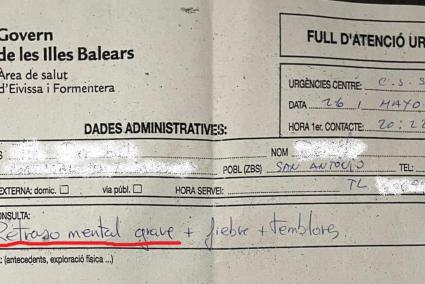 Govern
de les Illes Balears
Àrea de salut
d'Eivissa i Formentera
FULL D'ATENCIÓ UR
URGÈNCIES CENTRE: C.S.S
DATA 26 / MAYO
HORA 1er. CONTACTE: 20:22
DADES ADMINISTRATIVES:
S
NOM
POBL (ZBS) SAN ANTONIO TEL:
EXTERNA: domic. via públ. HORA SERVEI: TL
ONSULTA:
Retraso mental grave + fiebre + temblores.
: (antecedents, exploració física ...)